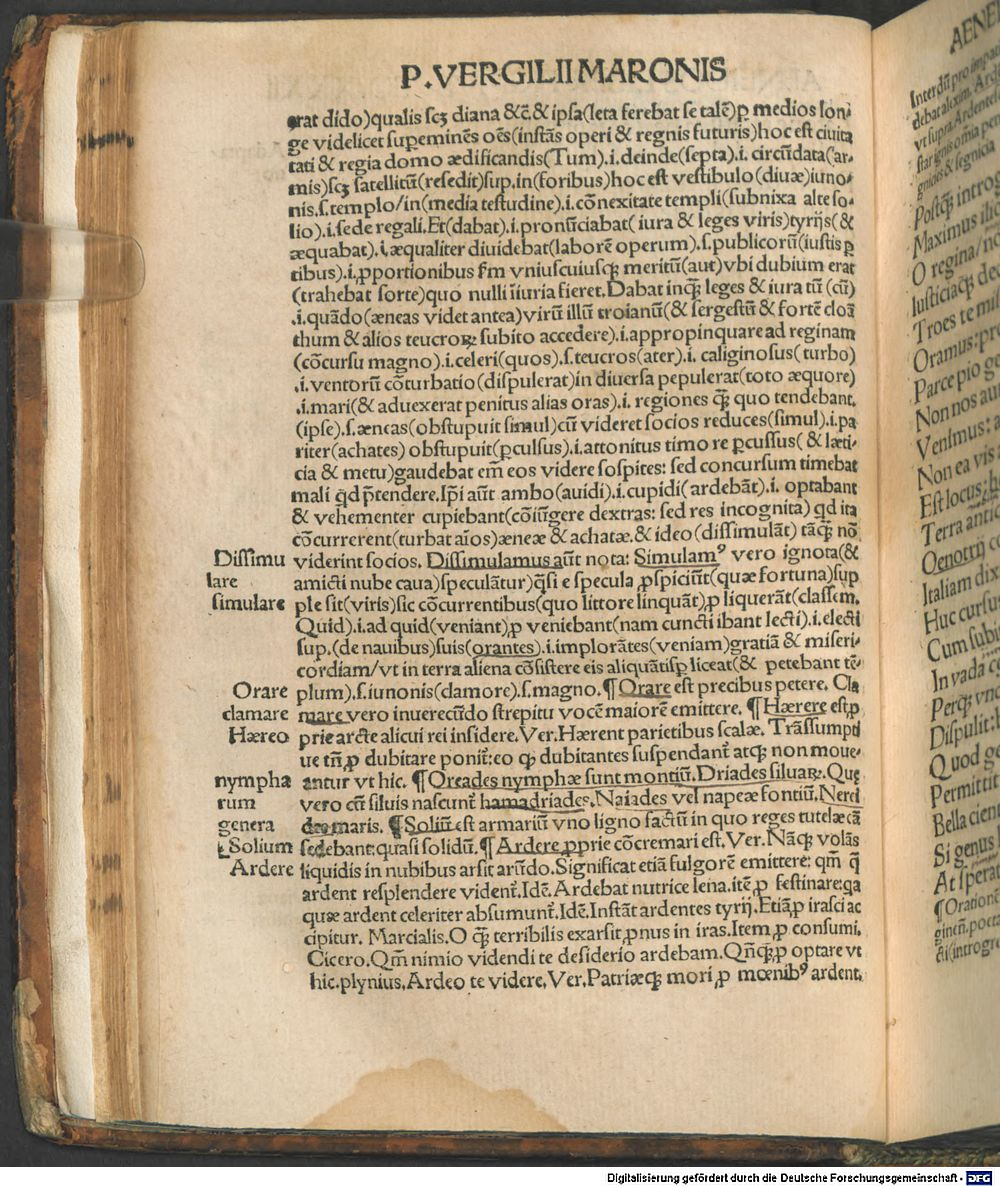 P. VERGILII MARONIS
erat dido)qualis scʒ diana &c̄.& ipsa(leta ferebat se talē)ꝑ medios lon⸗
ge videlicet suꝑeminēs oēs(instās operi & regnis futuris)hoc est ciuita
tati & regia domo ædificandis(Tum).i.deinde(septa).i. circūdata(ar⸗
mis)scʒ satellitū(resedit)sup.in(foribus)hoc est vestibulo(diuæ)iuno⸗
nis.s.templo/in(media testudine).i.cōnexitate templi(subnixa alte so⸗
lio).i.sede regali.Et(dabat).i.pronūciabat( iura & leges viris)tyrijs(&
æquabat).i.æqualiter diuidebat(laborē operum).s.publicorū(iustis ꝑ
tibus).i.ꝓportionibus s̄m vniuscuiusqꝫ meritū(aut)vbi dubium erat
(trahebat sorte)quo nulli īiuria fieret.Dabat inqꝫ leges & iura tū (cū)
.i.quādo(æneas videt antea)virū illū troianū(& sergestū & fortē cloā
thum & alios teucroꝝ subito accedere).i.appropinquare ad reginam
(cōcursu magno).i.celeri(quos).s.teucros(ater).i. caliginosus( turbo)
.i.ventorū cōturbatio(dispulerat)in diuersa pepulerat(toto æquore)
.i.mari(& aduexerat penitus alias oras).i. regiones qꝫ̄ quo tendebant.
(ipse).s.æneas(obstupuit simul)cū videret socios reduces(simul).i.pa
riter(achates) obstupuit(ꝑculsus).i.attonitus timore ꝑcussus( & læti⸗
cia & metu)gaudebat em̄ eos videre sospites: sed concursum timebat
mali qd p̄tendere.Ip̄i aūt ambo(auidi).i.cupidi( ardebāt).i. optabant
& vehementer cupiebant(cōiūgere dextras: sed res incognita) qd ita
cōcurrerent(turbat aīos)æneæ & achatæ.& ideo (dissimulāt) tāqꝫ nō
Dissimu viderint socios. Dissimulamus aūt nota: Simulamꝰ vero ignota(&
lare amicti nube caua)speculātur)q̄si e specula ꝓspiciūt(quæ fortuna)sup
simulare ple sit(viris)sic cōcurrentibus(quo littore linquāt)ꝓ liquerāt(classem.
Quid).i.ad quid(veniant)ꝓ veniebant(nam cuncti ibant lecti).i.electi
sup.(de nauibus)suis(orantes).i.implorātes(veniam)gratiā & miseri⸗
cordiam/vt in terra aliena cōsistere eis aliquātisꝑ liceat(& petebant tē⸗
Orare plum).s.iunonis(clamore).s.magno.¶Orare est precibus petere. Cla
clamare mare vero inuerecūdo strepitu vocē maiorē emittere. ¶Hærere est ꝓ
Hæreo prie arcte alicui rei insidere.Ver.Hærent parietibus scalæ. Trāssumpti
ue tn̄ ꝓ dubitare ponit̄:eo qꝫ dubitantes suspendant̄ atqꝫ non moue⸗
nympha antur vt hic. ¶Oreades nymphæ sunt montiū.Driades siluaꝝ.Que
rum vero cū siluis nascunt̄ hamadriades.Naiades vel napeæ fontiū.Nerei
genera des maris. ¶Soliū est armariū vno ligno factū in quo reges tutelæ cā
Solium sedebant:quasi solidū.¶Ardere ꝓprie cōcremari est.Ver.Nāqꝫ volās
Ardere liquidis in nubibus arsit arūdo.Significat etiā fulgorē emittere: qm̄ q̄
ardent resplendere vident̄.Idē.Ardebat nutrice lena.itē ꝓ festinare:qa
quæ ardent celeriter absumunt̄.Idē.Instāt ardentes tyrij.Etiā ꝓ irasci ac
cipitur. Marcialis.O qꝫ̄ terribilis exarsit ꝓnus in iras.Item ꝓ consumi.
Cicero.Qm̄ nimio videndi te desiderio ardebam.Qn̄qꝫ ꝓ optare vt
hic.plynius.Ardeo te videre.Ver.Patriæqꝫ mori ꝓ mœnibꝰ ardent.
AENEI
Interdū pro impa
vt supra.Ardente
Postqꝫ introg
Maximus ilio
O regina/no
Iusticiaqꝫ de
Troes te mi
Oramus:pro
Parce pio ge
Non nos aut
Venimus: a
Non ea vis a
Est locus: he
Terra antic
Oenotrij c
Italiam dix
Huc cursus
Cum subi
In vada c
Perqꝫ vn
Dispulit: h
Quod ge
Permittit
Bella cient
Si genus
At sperat
¶Oratione
Digitalisierung gefördert durch die Deutsche Forschungsgemeinschaft - DFG